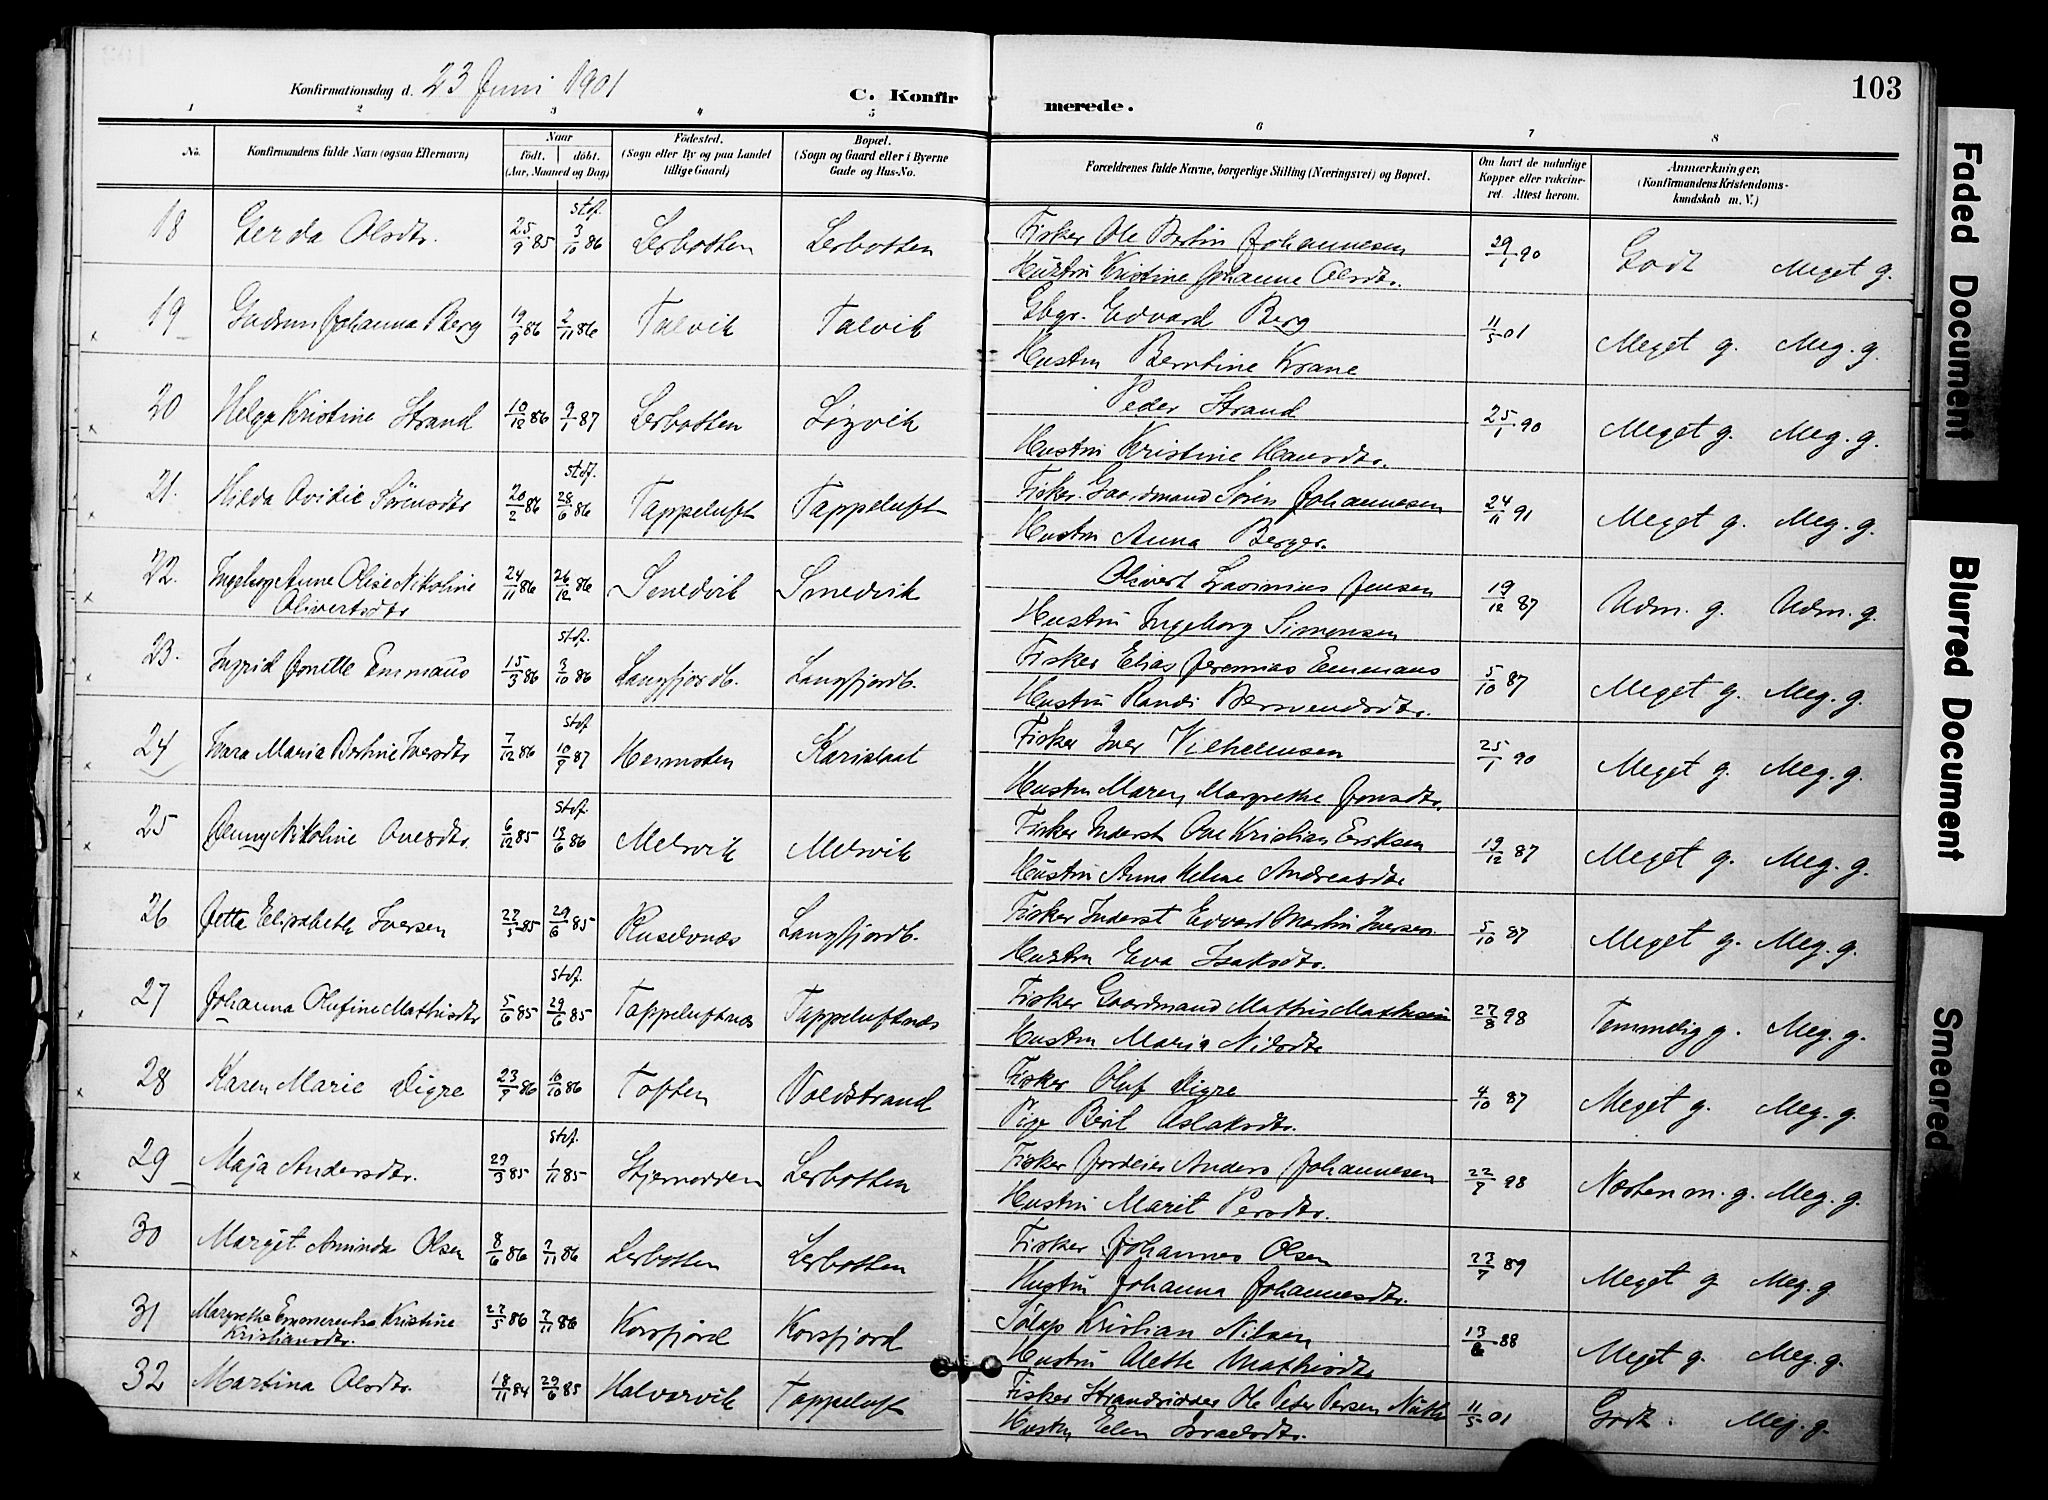 103
Konfirmationsdag d. 23 Juni 1901
C. Konfirmerede.
1 2 3 " 5 6 7 8
No. Konfirmandens fulde Navn (ogsaa Efternavn) Naar födt. döbt. (Aar, Maaned og Dag) Födested. (Sogn eller By og paa Landet tillige Gaard) Bopæl. (Sogn og Gaard eller i Byerne Gade og Hus-No. Forældrenes fulde Navne, borgerlige Stilling (Næringsvei) og Bopæl. Om havt de naturlige Kopper eller vakcineret. Attest herom. Anmærkninger. (Konfirmandens Kristendomskundskab m. V.)
18 Gerda Olsdtr. 25/9 85 stdf. 3/10 86 Lerbotten Lerbotten Fisker Ole Bertin Johannesen 29/1 90 Godt Meget g.
Hustru Kristine Johanne Olsdtr.
19 Gudrun Johanna Berg 19/9 86 2/11 86 Talvik Talvik Gbgr. Edvard Berg 11/5 01 Meget g. Meg. g.
Hustru Berntine Krane
20 Helga Kristine Strand 10/12 86 9/1 87 Lerbotten Peder Strand 25/1 90 Meget g. Meg. g.
Hustru Kristine Hansdtr.
21. Hilda Ovidie Sörensdtr 20/2 86 stdf. 28/6 86 Tappeluft Tappeluft Fisker. Gaardmand Sören Johannesen 24/11 91 Meget g. Meg. g.
Hustru Anna Berger.
22. Ingeborg Anne Olise Nikoline 24/11 86 26/12 86 Smedvik Smedvik Olivert Jensen 19/12 87 Udm. g. Udm. g.
Olivertsdtr Hustru Ingeborg Simonsen
23. Ingrid Jonette Emmaus 15/3 86 stdf. 3/10 86 Langfjordb. Langfjordb. Fisker Elias Jeremias Emmaus 5/10 87 Meget g. Meg. g.
Hustru Randi
24 Ivara Maria Bertine Iversdtr 7/12 86 stdf. 10/9 87 Fisker Iver Vilhelmsen 25/1 90 Meget g. Meg. g.
Hustru Maren Margrethe Jonsdtr.
25 Jenny Nikoline Ovesdtr. 6/12 85 stdf. 86 Melsvik Melsvik Fisker Inderst Ove Kristian Eriksen 19/12 87 Meget g. Meg. g.
Hustru Anna Helene Andreasdtr
26 Jetta Elisabeth Iversen 27/5 85 29/6 85 Langfjordb. Fisker Inderst Edvard Martin Iversen 5/10 87 Meget g. Meg. g.
Hustru Eva Isaksdtr.
27 Johanna Olufine Mathisdtr 5/6 85 stdf. 29/6 85 Tappeluftnæs Tappeluftnæs Fisker Gaardmand Mathis Mathisen 27/8 98 Temmelig g. Meg. g.
Hustru Maria Nilsdtr
28 Karen Marie Digre 23/9 86 10/10 86 Toften Voldstrand Fisker Oluf Digre 4/10 87 Meget g. Meg. g.
Pige Berit Aslaksdtr.
29 Maja Andersdtr. 29/3 85 stdf. 1/11 85 Stjernodden Lerbotten Fisker Jordeier Anders Johannesen 98 Næsten m. g. Meg. g.
Hustru Marit Persdtr.
30 Margit Aminda Olsen 8/6 86 7/11 86 Lerbotten Lerbotten Fisker Johannes Olsen 89 Meget g Meg. g
Hustru Johanna Johannesdtr.
31 Margrethe Emmerentse Kristine 27/5 86 7/11 86 Korsfjord Korsfjord Kristian Nilsen 13/6 88 Meget g. Meg. g.
Kristiansdtr. Hustru Alette Mathisdtr
32 Martina Olsdtr. 18/11 84 29/6 85 Halvarvik Tappeluft Fisker Strandsidder Ole Peter Persen 11/5 01 Godt. Meg. g.
Hustru Elen Israelsdtr.
Faded Document
Blurred Document
Smeared